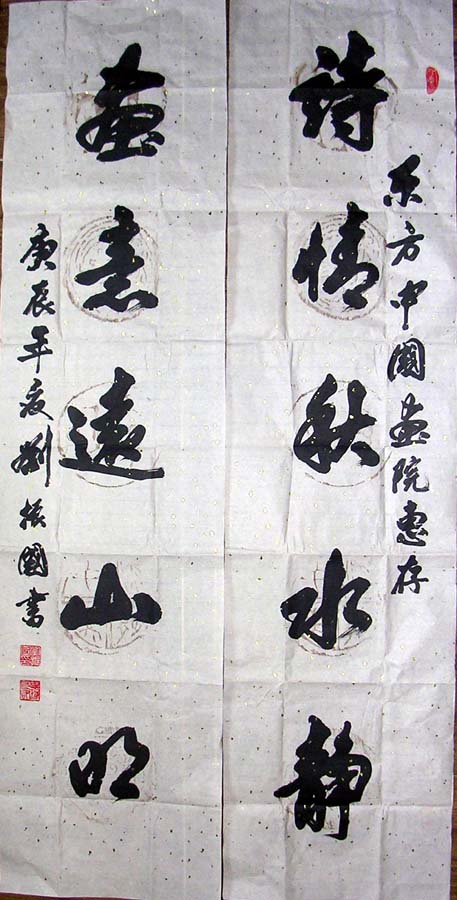 东方中國畫院惠存
詩情秋水靜
畫意遠山明
庚辰年夏劉振國書